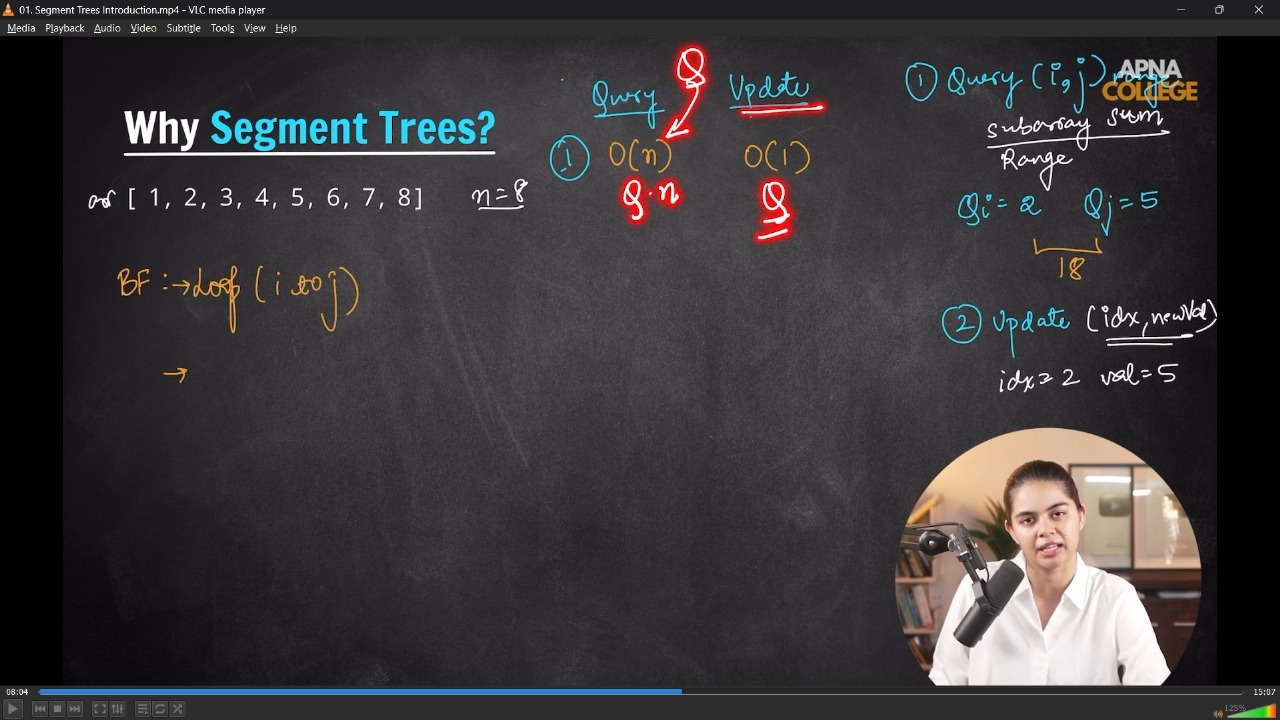 01. Segment Trees Introduction.mp4 - VLC media player
Media Playback Audio Video Subtitle Tools View Help
Why Segment Trees?
arr [ 1, 2, 3, 4, 5, 6, 7, 8 ] n=8
BF :→ Loop ( i to j )
→
Q
Query Update
① O(n) O(1)
Q·n Q
① Query (i, j) range
APNA
COLLEGE
subarray sum
Range
Qi = 2 Qj = 5
18
② Update (idx, newVal)
idx = 2 val = 5
08:04 15:07
125%